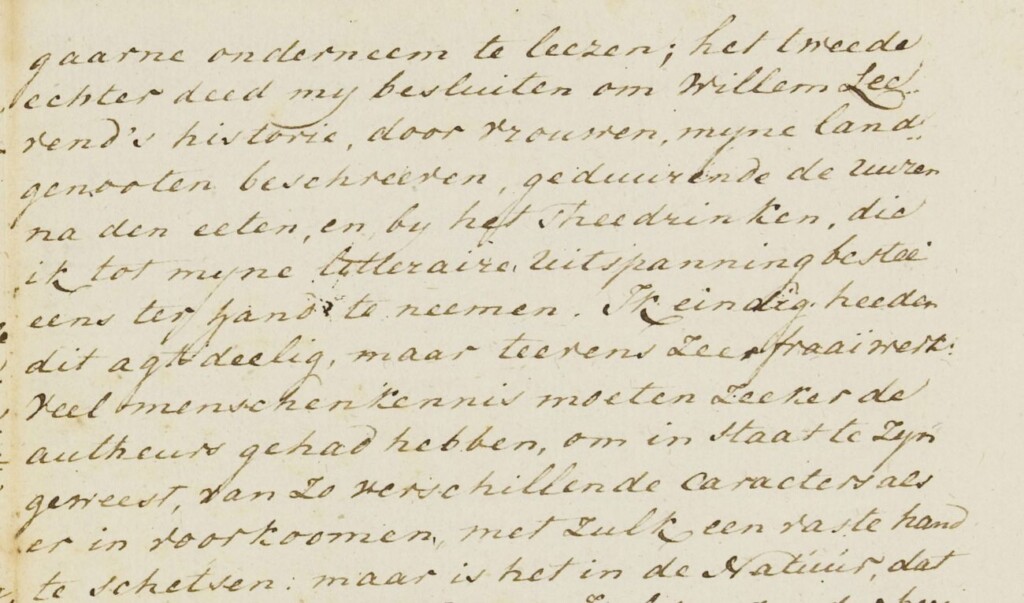 gaarne onderneem te leezen; het tweede
echter deed my besluiten om Willem Lee-
vend's historie, door vrouwen, myne land-
genooten beschreeven, geduurende de uuren
na den eeten, en by het Theedrinken, die
ik tot myne litteraire Uitspanning bestee
eens ter hand te neemen. Ik eindig heeden
dit agt deelig, maar teevens Zeer fraai werk:
Veel menschenkennis moeten Zeeker de
autheurs gehad hebben, om in staat te Zyn
geweest, van Zo verschillende Caracters als
er in voorkoomen, met Zulk een vaste hand
te schetsen: maar is het in de Natuur, dat